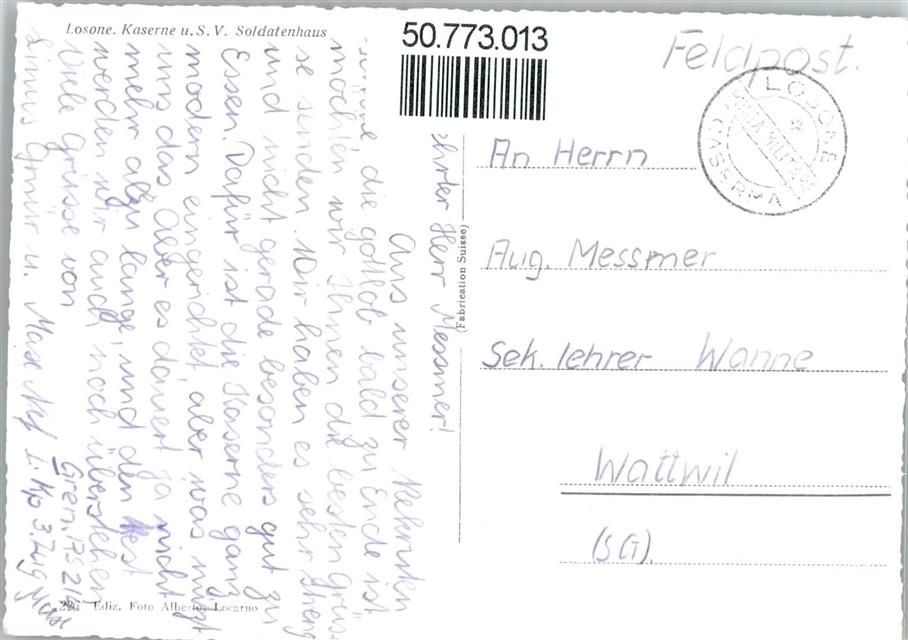 Losone. Kaserne u. S. V. Soldatenhaus
50.773.013
Feldpost.
LOSONE
CASERMA
An Herrn
Aug. Messmer
Sek. lehrer Wanne
Wattwil
(SG).
(Fabrication Suisse)
ehrter Herr Messmer!
Aus unserer Rekruten
die gottlob bald zu Ende ist
möchten wir Ihnen die besten Grüs-
se senden. Wir haben es sehr streng
und nicht gerade besonders gut zu
Essen. Dafür ist die Kaserne ganz
modern eingerichtet, aber was nützt
uns das. Aber es dauert ja nicht
mehr allzu lange, und den Rest
werden wir auch noch überstehen
Viele Grüsse von
Linus Gmür u. Max
Gren. RS
3. Zug
226 Ediz. Foto Alberto, Locarno